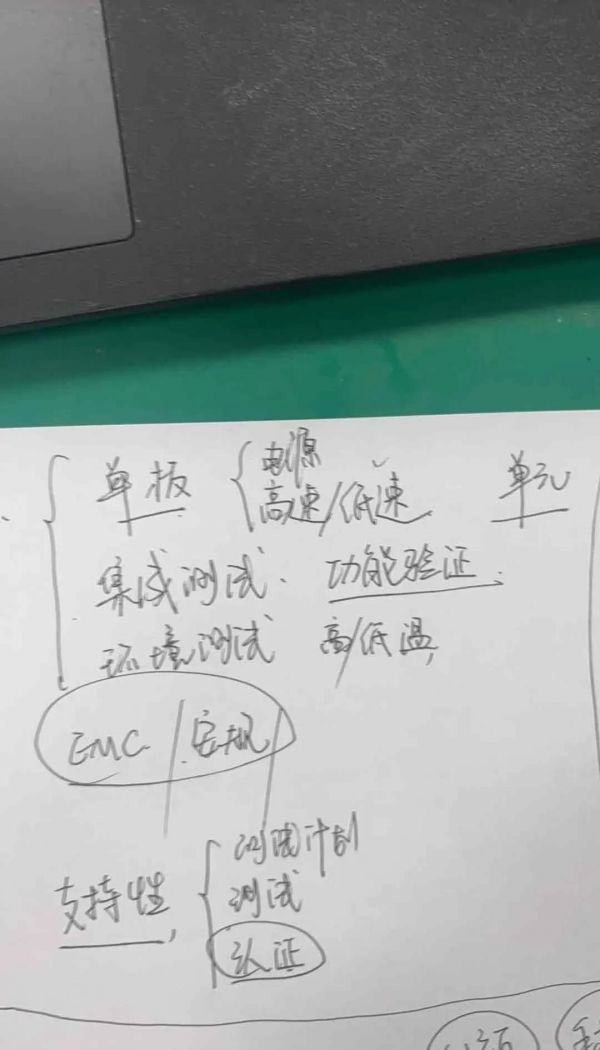 单板 { 电源 单元
高速/低速
集成测试. 功能验证.
环境测试 高/低温,
EMC / 安规
测试计划
支持性, { 测试
认证